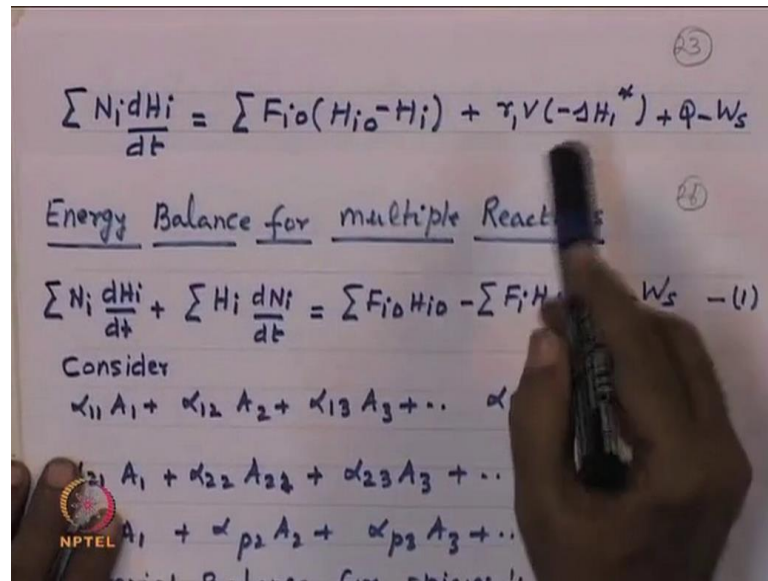 23
∑ Ni dHi/dt = ∑ Fi0 (Hi0 - Hi) + r1 V (-ΔH1*) + Q - Ws
26
Energy Balance for multiple React s
∑ Ni dHi/dt + ∑ Hi dNi/dt = ∑ Fi0 Hi0 - ∑ Fi H Ws - (1)
Consider
α11 A1 + α12 A2 + α13 A3 + .. α
21 A1 + α22 A22 + α23 A3 + ..
A1 + αp2 A2 + αp3 A3 + ..
NPTEL